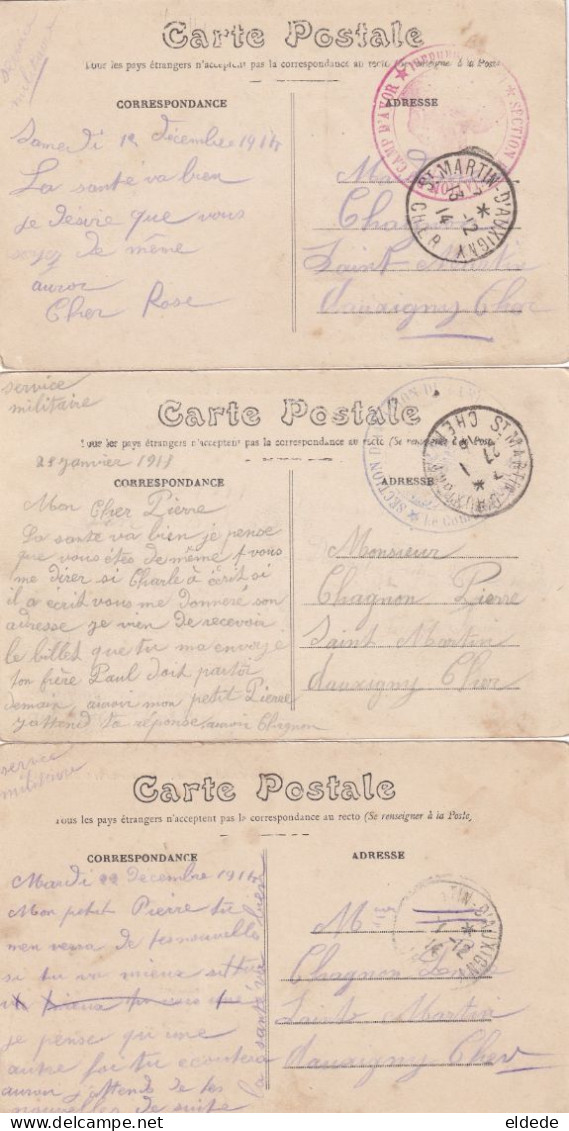 service
militaire
Carte Postale
Tous les pays étrangers n'acceptent pas la correspondance au recto (Se renseigner à la Poste
CORRESPONDANCE
ADRESSE
CAMP D'AVOR ★ ★ SECTION
ST MARTIN-D'AUXIGNY
CHER
14
Samedi 12 décembre 1914
La santé va bien
je désire que vous
soyez de même
auror
Cher Rose
Saint Martin
dauxigny Cher
service
militaire
Carte Postale
Tous les pays étrangers n'acceptent pas la correspondance au recto (Se renseigner à la Poste
CORRESPONDANCE
ADRESSE
★ SECTION
ST MARTIN-D'AUXIGNY
CHER
27
1
Janvier 1915
Mon Cher Pierre
La santé va bien je pense
que vous êtes de même
me direr si Charle à écrit si
il a ecrit vous me donneré son
adresse je vien de recevoir
le billet que tu ma envoyé
ton frère Paul doit partir
demain, auroir mon petit Pierre
j'attend ta réponse, auroir Chagnon
Monsieur
Chagnon Pierre
Saint Martin
dauxigny Cher
service
militaire
Carte Postale
Tous les pays étrangers n'acceptent pas la correspondance au recto (Se renseigner à la Poste)
CORRESPONDANCE
ADRESSE
D'AUXIGNY
12
14
Mardi 22 Decembre 1914
Mon petit Pierre tu
men verra de tes nouvelle
si tu va mieux
je pense qu'une
autre foi tu ecoutera
auroir j'attends de tes
nouvelles de suite
la santé va bien
M
Chagnon
Sainte Martin
dauxigny Cher
eldede